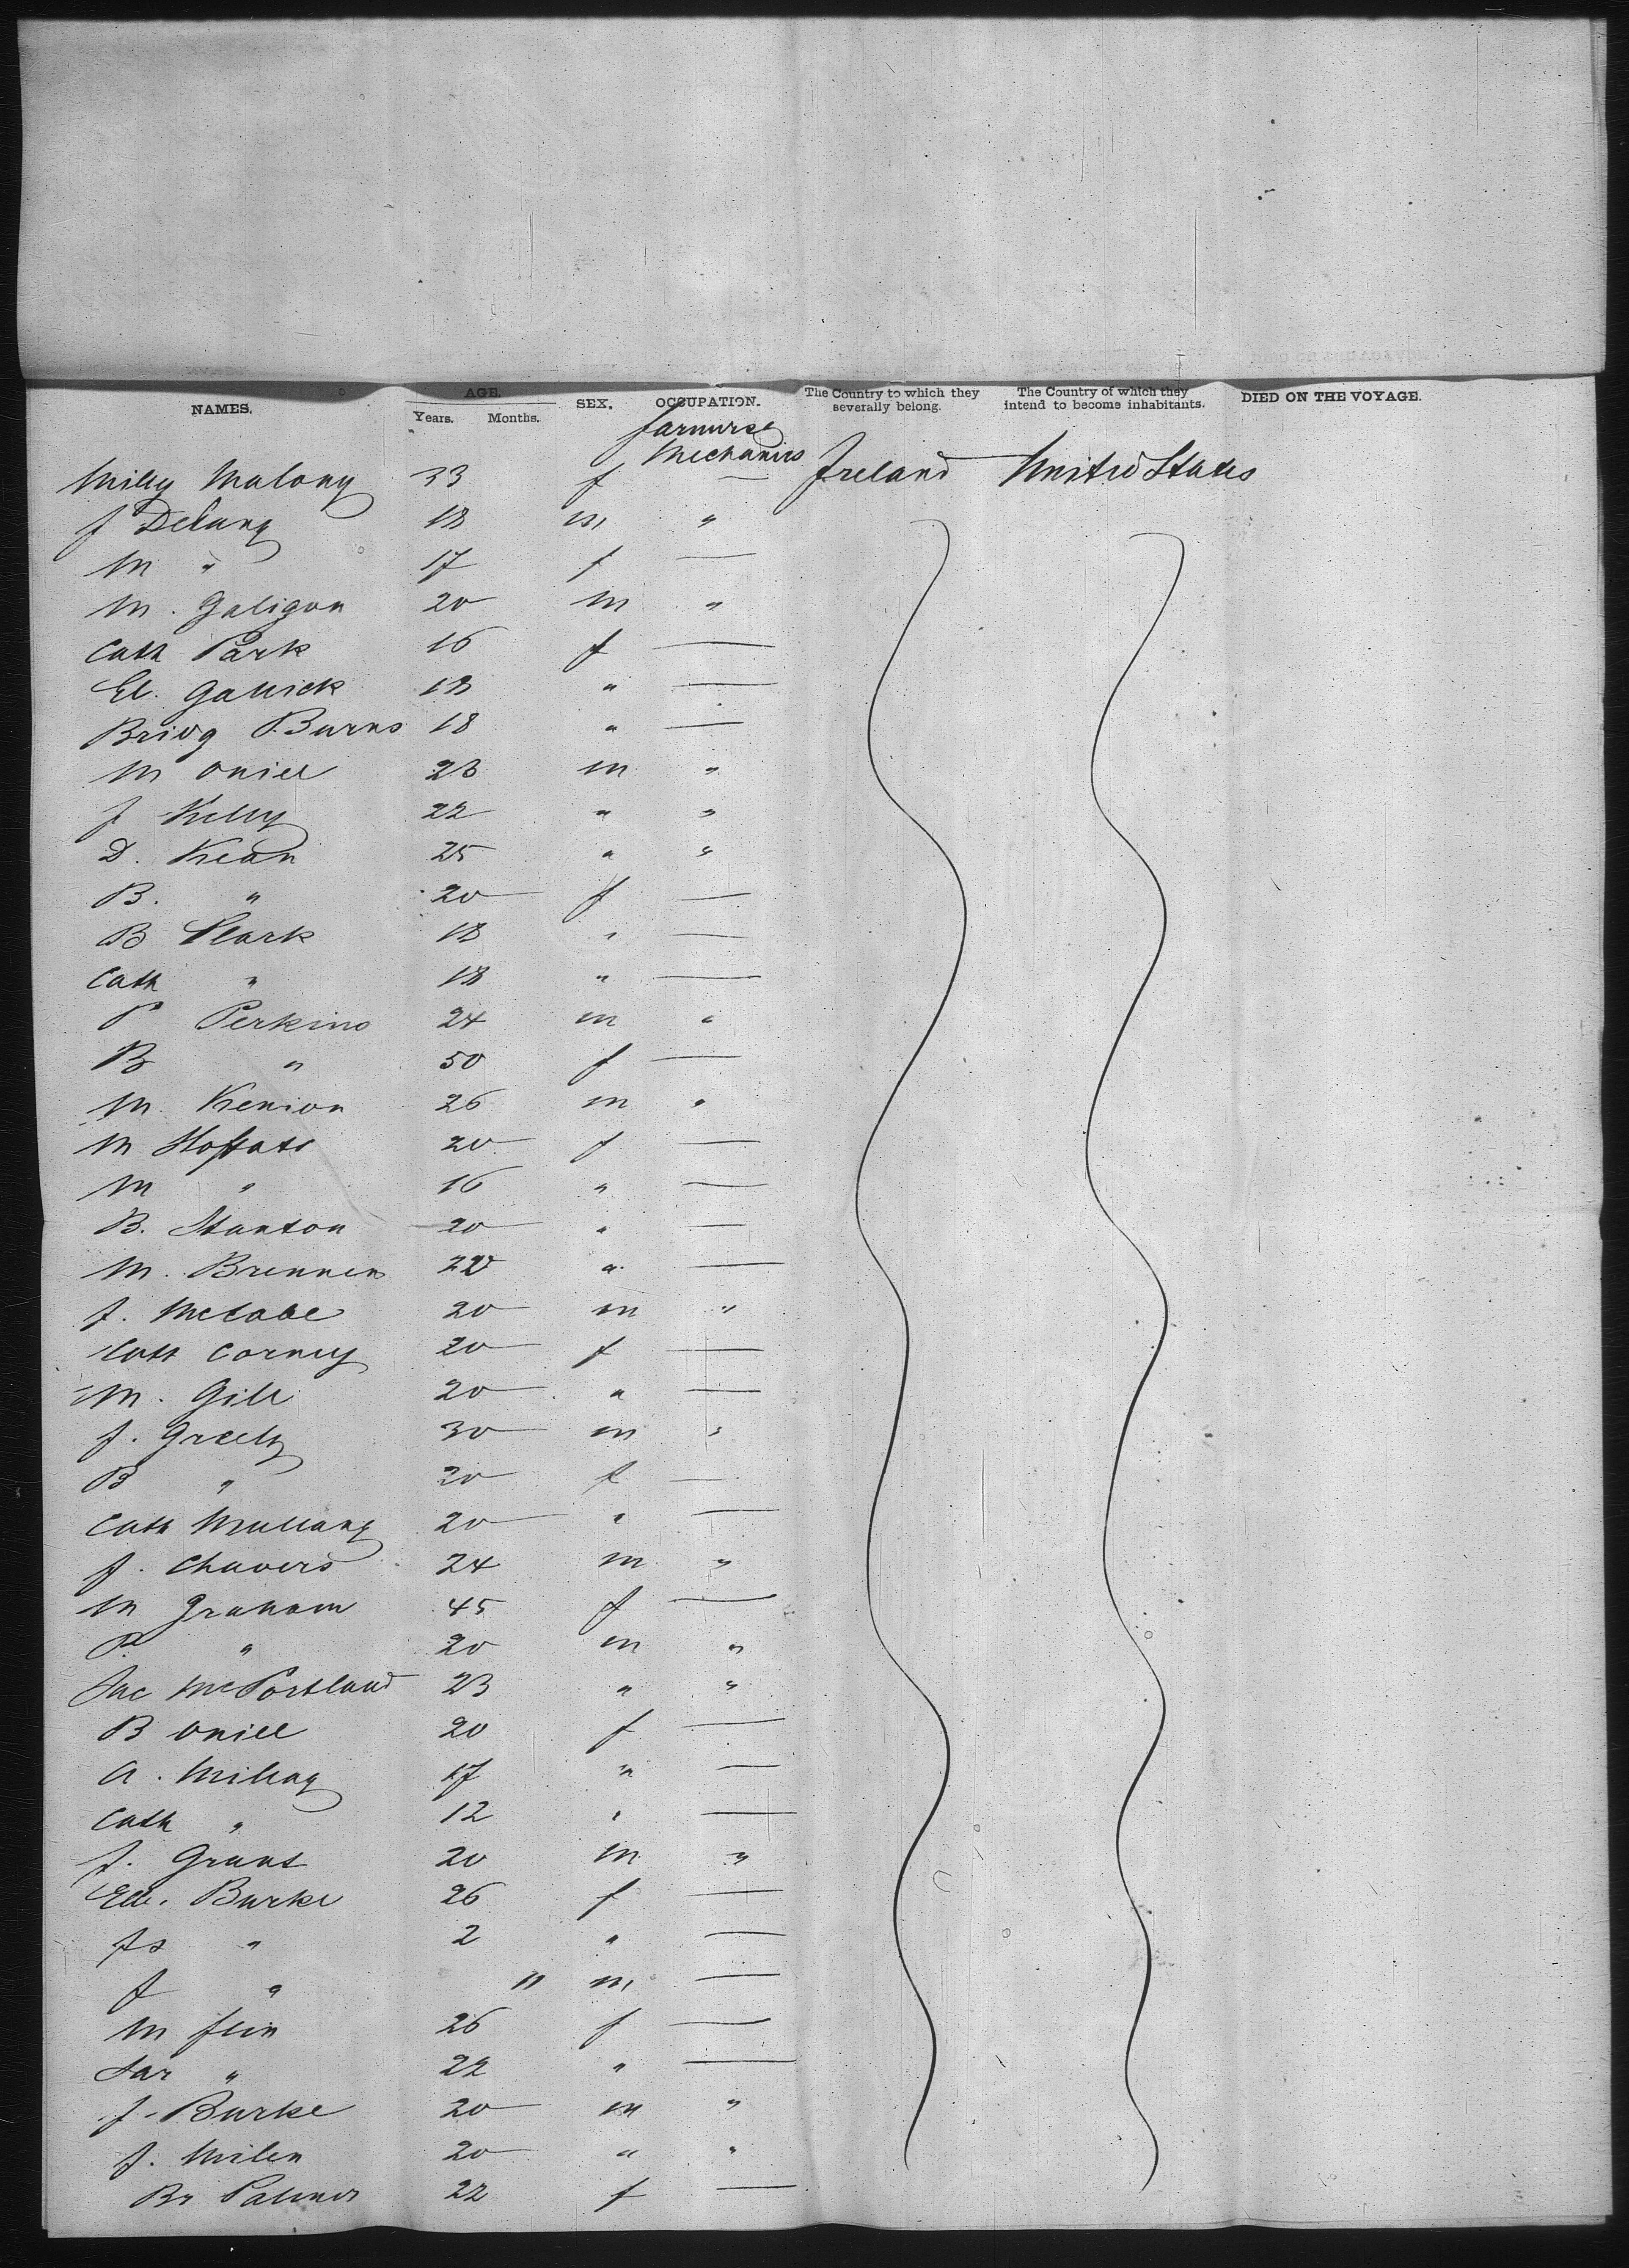 NAMES. AGE. SEX. OCCUPATION. The Country to which they severally belong. The Country of which they intend to become inhabitants. DIED ON THE VOYAGE.
Years. Months.
farmers
Mechanics
Milly Malony 33 f — Ireland United States
J Delany 18 m "
M " 17 f —
M. Galigan 20 m "
Cath Park 16 f —
El. Gallick 18 " —
Bridg Burns 18 " —
M Oniell 23 m "
J Kelly 22 " "
D. Kean 25 " "
B. " 20 f —
B Clark 18 " —
Cath " 18 " —
P Perkins 24 m "
B " 50 f —
M. Kenion 26 m "
M 20 f —
M " 16 " —
B. Stanton 20 " —
M. Brennen 22 " —
J. McCabe 20 m "
Cath Corney 20 f —
M. Gill 20 " —
J. Greely 30 m "
B " 20 f —
Cath Mullany 20 " —
J. Chavers 24 m "
M Graham 45 f —
P. " 20 m "
Jac McPortland 23 " "
B Oniell 20 f —
A. Millay 17 " —
Cath " 12 " —
J. Grant 20 m "
Ell. Burke 26 f —
Js " 2 " —
J " 11 m —
M flin 26 f —
Sar " 22 " —
J. Burke 20 m "
J. Milen 20 " "
Br Palmer 22 f —